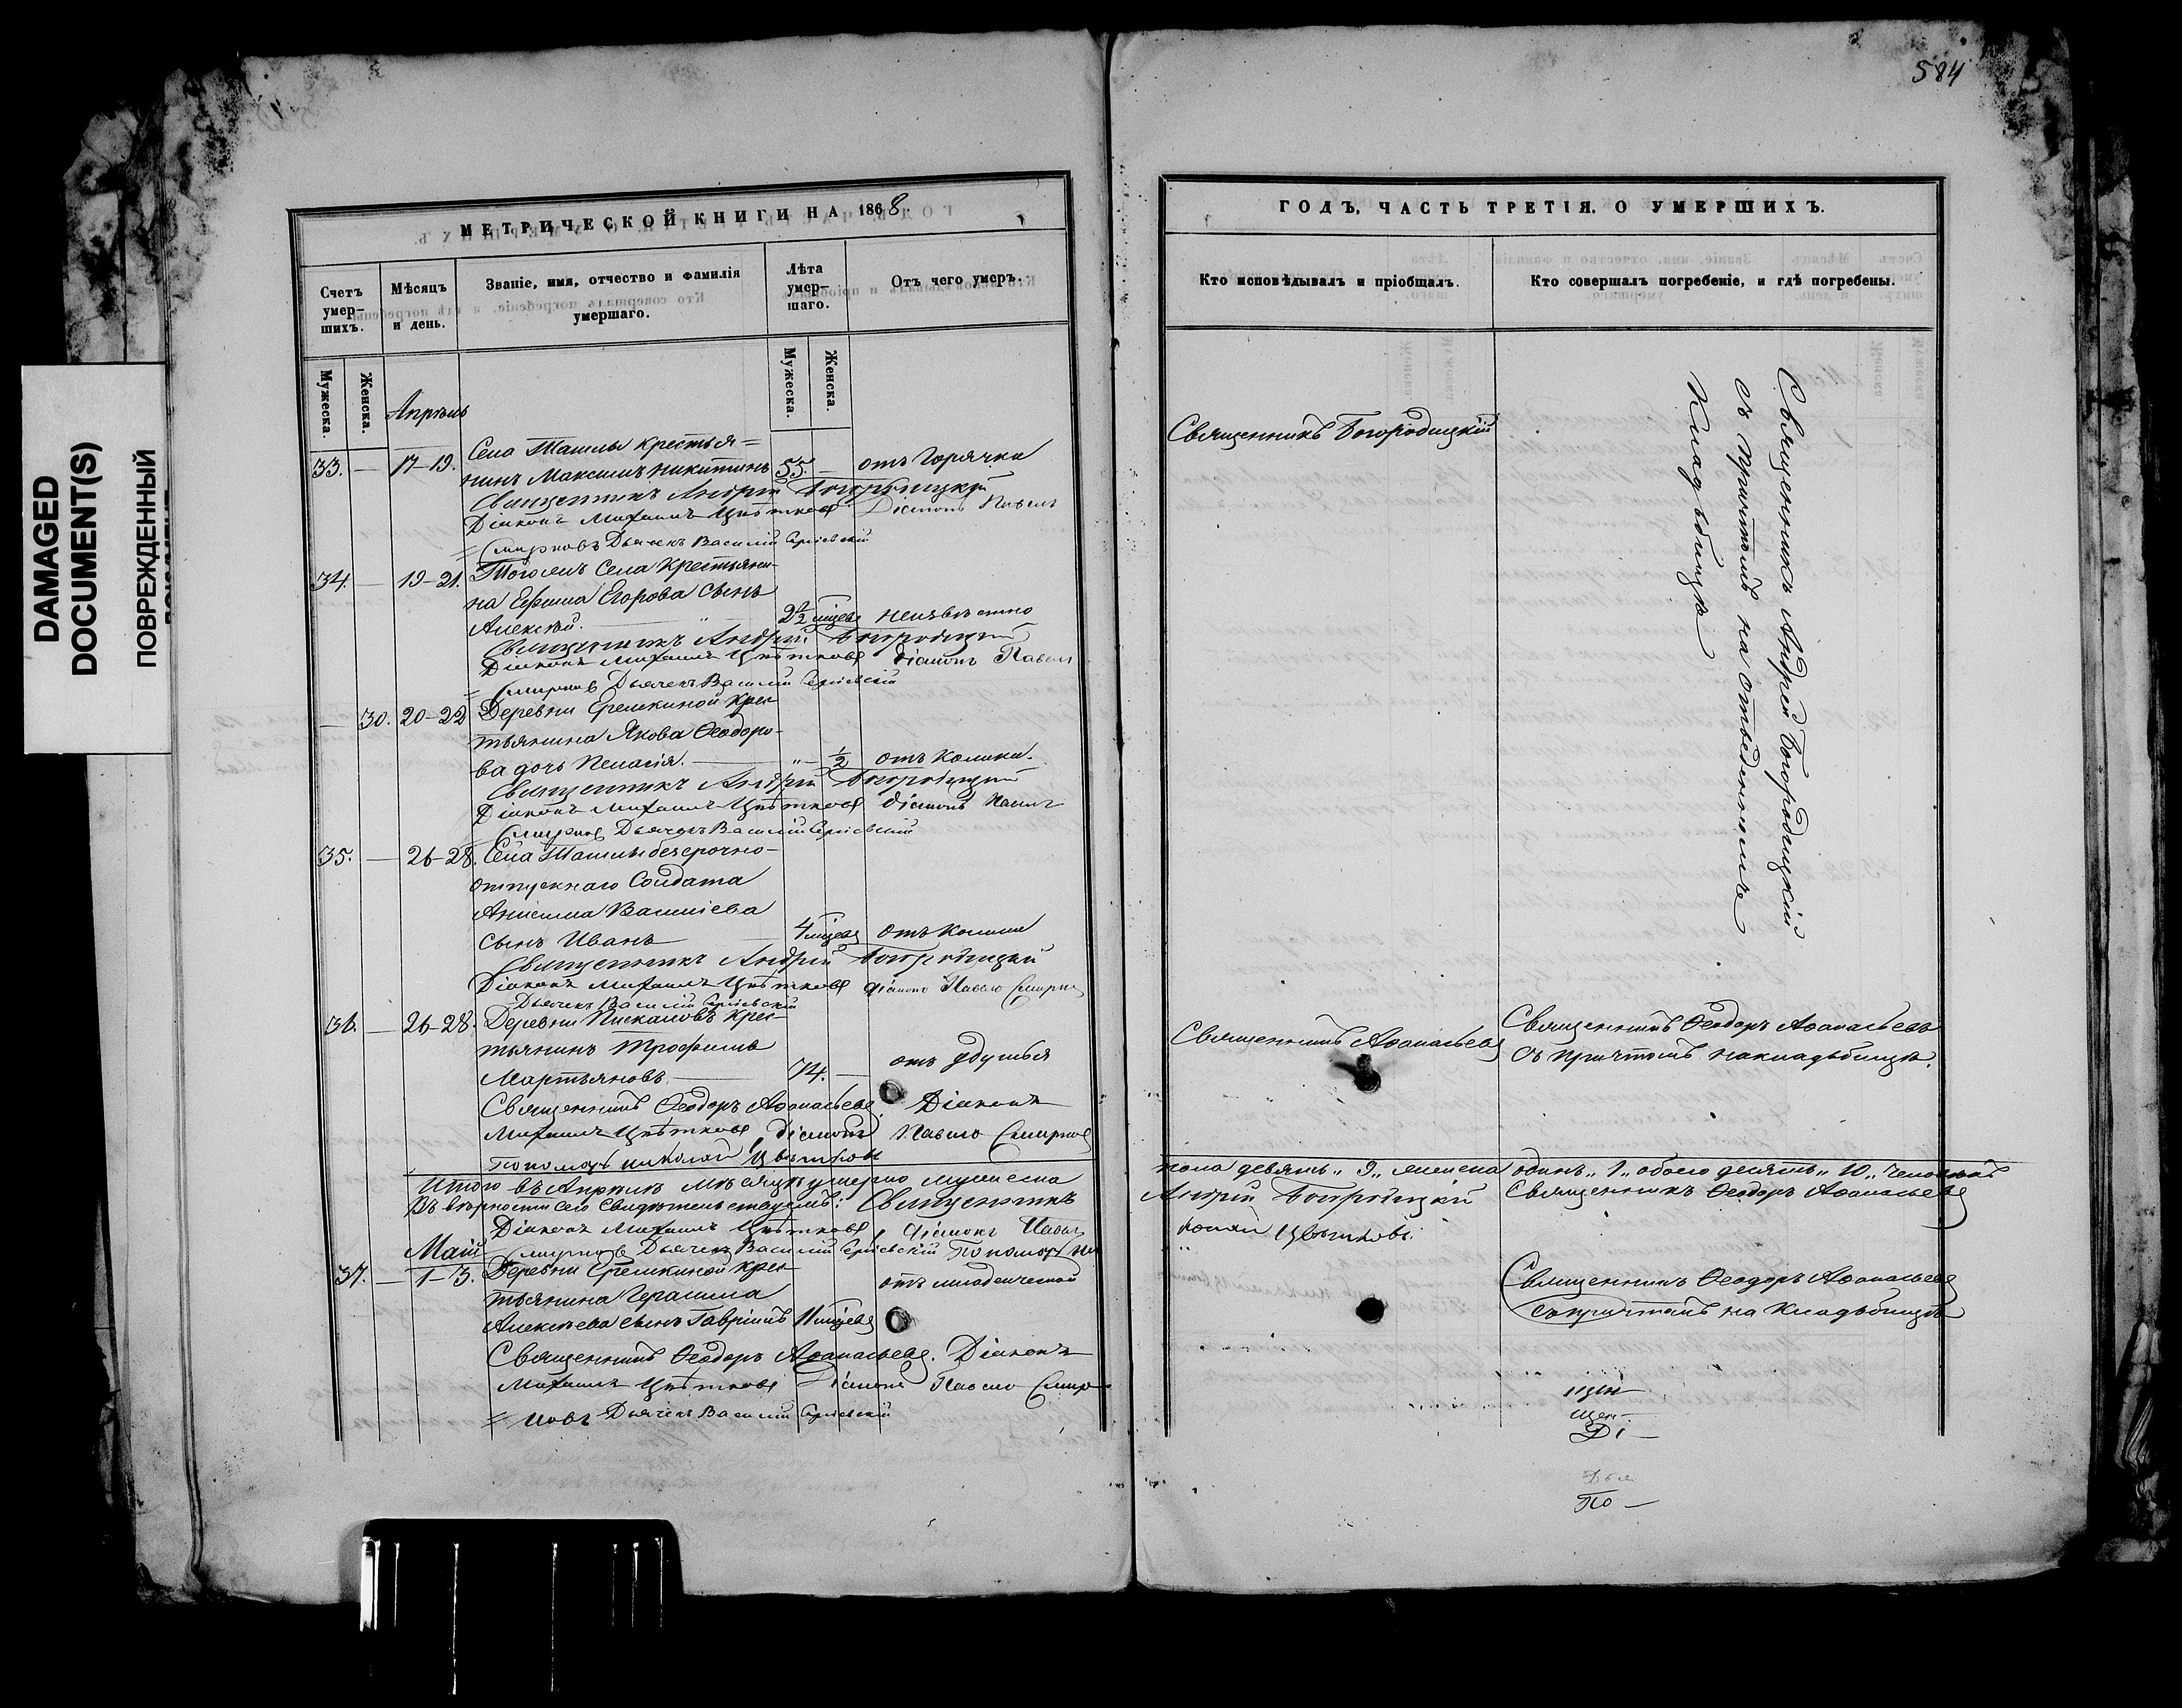 584
DAMAGED
DOCUMENT(S)
ПОВРЕЖДЕННЫЙ
МЕТРИЧЕСКОЙ КНИГИ НА 1868
Счетъ умер-шихъ.
Мѣсяцъ и день.
Званіе, имя, отчество и фамилія умершаго.
Лѣта умер-шаго.
Отъ чего умеръ.
Мужеска.
Женска.
Мужеска.
Женска.
Апрѣль
Села Ташлы крестья=
33. — 17-19. нинъ Максимъ Никитинъ 55. — отъ Горячки
Священникъ Андрей Богородицкій
Діаконъ Михаилъ Цвѣтковъ Діаконъ Павелъ
= Смирновъ Дьячекъ Василій Сергіевскій
34. — 19-21. Тогожъ Села Крестьяни-
на Ефима Егорова сынъ
Алексѣй. 2½ мѣсяц неизвѣстно
Священникъ Андрей Богородицкій
Діаконъ Михаилъ Цвѣтковъ Діаконъ Павелъ
= Смирновъ Дьячекъ Василій Сергіевскій
— 30. 20-22 Деревни Еремкиной крес-
тьянина Якова Ѳеодоро-
ва дочь Пелагія. — „ — ½ отъ Колики.
Священникъ Андрей Богородицкій
Діаконъ Михаилъ Цвѣтковъ Діаконъ Павелъ
Смирновъ Дьячекъ Василій Сергіевскій
35. — 26-28. Села Ташлы безсрочно-
отпускнаго Солдата
Анисима Васильева
сынъ Иванъ 4 мѣсяц отъ Колики
Священникъ Андрей Богородицкій
Діаконъ Михаилъ Цвѣтковъ Діаконъ Павелъ Смирновъ
Дьячекъ Василій Сергіевскій
36. — 26-28. Деревни Пискаловъ крес-
тьянинъ Трофимъ
Мартьяновъ. 74. — отъ удушья
Священникъ Ѳеодоръ Аѳанасьевъ. Діаконъ
Михаилъ Цвѣтковъ, Діаконъ Павелъ Смирновъ
Пономарь Николай Цвѣтковъ
Итого въ Апрѣлѣ мѣсяцѣ умерло мужеска
Въ вѣрности сего свидѣтельствуемъ: Священникъ
Діаконъ Михаилъ Цвѣтковъ, Діаконъ Павелъ
Май Смирновъ Дьячекъ Василій Сергіевскій Пономарь Ни
37. — 1-3. Деревни Еремкиной крес-
тьянина Герасима отъ младенческой
Алексѣева сынъ Гавріилъ 11 мѣсяц
Священникъ Ѳеодоръ Аѳанасьевъ. Діаконъ
Михаилъ Цвѣтковъ Діаконъ Павелъ Смир-
= новъ Дьячекъ Василій Сергіевскій
ГОДЪ, ЧАСТЬ ТРЕТІЯ, О УМЕРШИХЪ.
Кто исповѣдывалъ и пріобщалъ.
Кто совершалъ погребеніе, и гдѣ погребены.
Священникъ Богородицкій
Священникъ Андрей Богородицкій
съ Причтомъ на отведенномъ
Кладбищѣ
Священникъ Аѳанасьевъ
Священникъ Ѳеодоръ Аѳанасьевъ
съ причтомъ на кладьбищѣ.
пола девять „ 9 „ женска одинъ „ 1 „ обоего десять „ 10 „ человѣкъ
Андрей Богородицкій Священникъ Ѳеодоръ Аѳанасьевъ
колай Цвѣтковъ.
Священникъ Ѳеодоръ Аѳанасьевъ
съ причтомъ на Кладьбищѣ
щен-
Ді —
По —